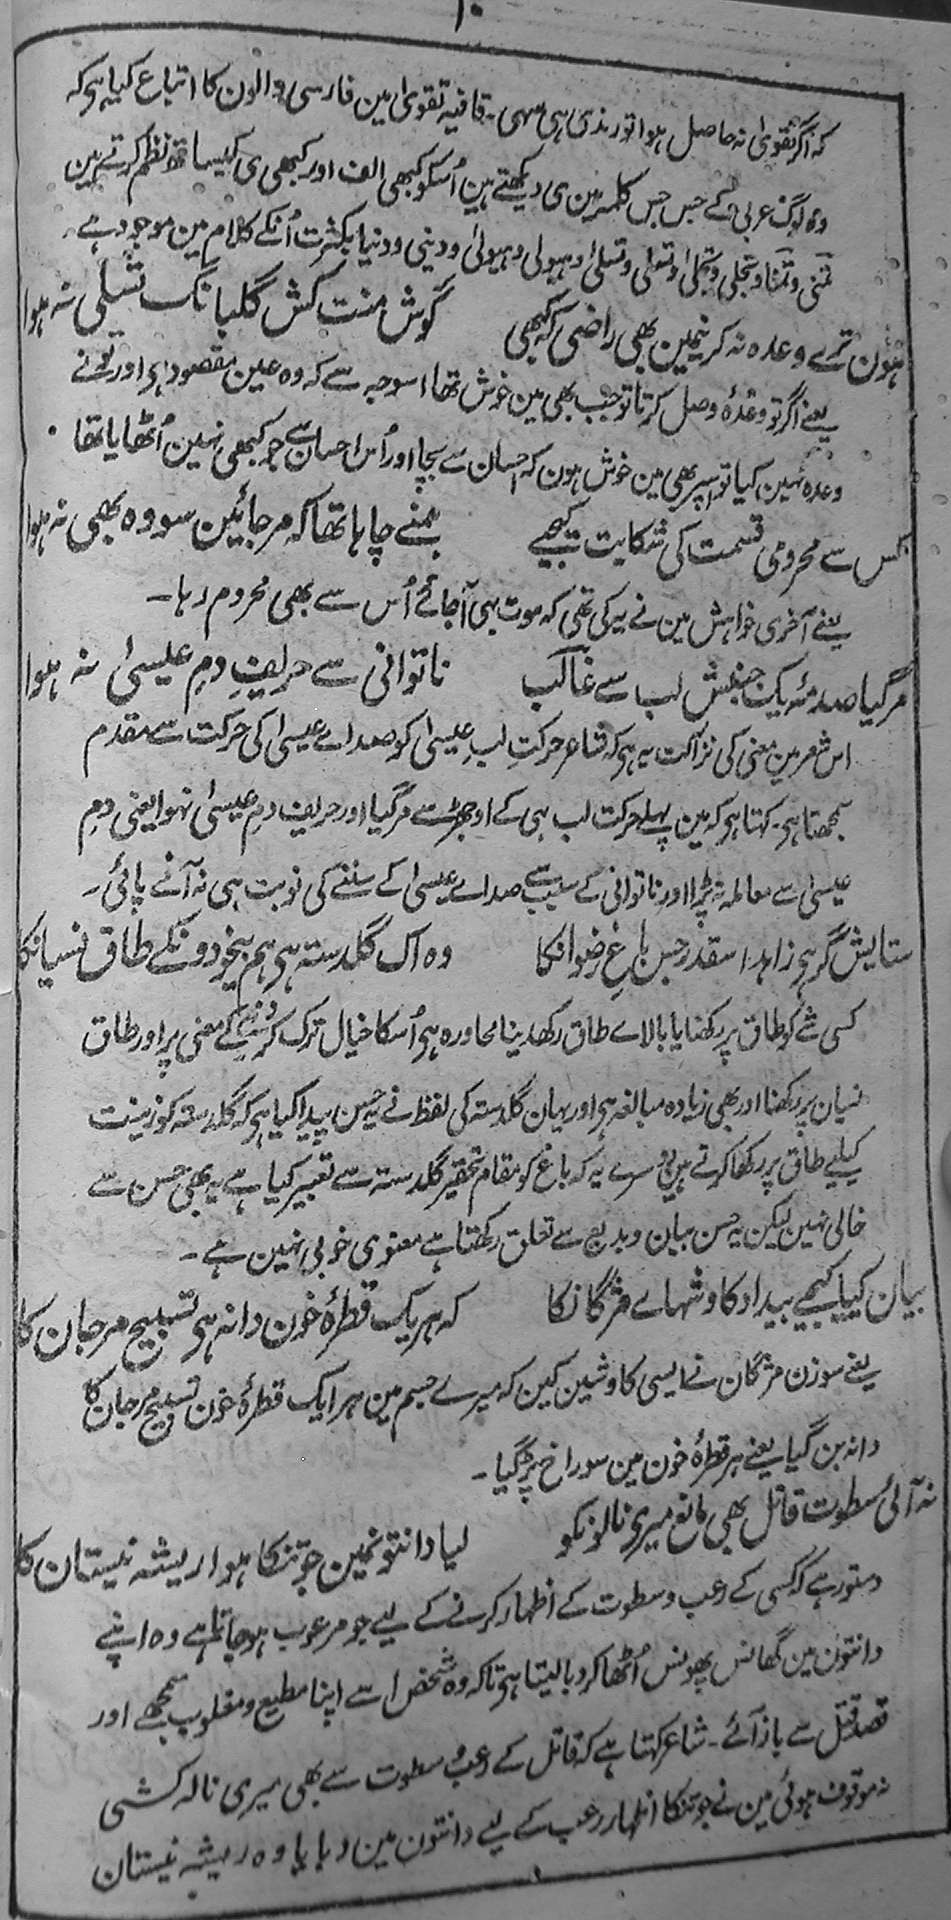 ۱۰
کہ اگر تقویٰ نہ حاصل ہوا تو رندی ہی سہی۔ قافیہ تقویٰ مین فارسی والون کا اتباع کیا ہو کہ
وہ لوگ عربی کے جس جس کلمہ مین ی دیکھتے ہین اُسکو کبھی الف اور کبھی ی کیساتھ نظم کرتے ہین
تمنی و تمنا و تجلی و تجلیٰ و تسلی و تسلیٰ و ہیولی و ہیولیٰ و دینی و دنیا بکثرت اُنکے کلام مین موجود ہے۔
ہون ترے وعدہ نہ کرنیمین بھی راضی کہ کبھی گوش منت کش گلبانگ تسلی نہ ہوا
یعنے اگر تو وعدۂ وصل کرتا تو جب بھی مین خوش تھا اسوجہ سے کہ وہ عین مقصود ہو اور تونے
وعدہ نہین کیا تو اسپر بھی مین خوش ہون کہ احسان سے بچا اور اُس احسان سے جو کبھی نہین اُٹھایا تھا۔
کس سے محرومی قسمت کی شکایت کیجیے ہمنے چاہا تھا کہ مر جائین سو وہ بھی نہ ہوا
یعنے آخری خواہش مین نے یہ کی تھی کہ موت ہی آجائے اُس سے بھی محروم رہا۔
مر گیا صدمۂ یک جنبش لب سے غالب ناتوانی سے حریفِ دمِ عیسیٰ نہ ہوا
اس شعر مین معنی کی نزاکت یہ ہو کہ شاعر حرکتِ لبِ عیسیٰ کو صداے عیسیٰ کی حرکت سے مقدم
سمجھتا ہو۔ کہتا ہو کہ مین پہلے حرکت لب ہی کے اوجھڑ سے مر گیا اور حریفِ دمِ عیسیٰ نہوا یعنی دمِ
عیسیٰ سے معاملہ نہ پڑا اور ناتوانی کے سبب سے صداے عیسیٰ کے سننے کی نوبت ہی نہ آنے پائی۔
ستایش گر ہو زاہد اسقدر جس باغِ رضوانکا وہ اک گلدستہ ہی ہم بیخودونکے طاق نسیانکا
کسی شے کو طاق پر رکھنا یا بالاے طاق رکھدینا محاورہ ہی اُسکا خیال ترک کر دینے کے معنی پر اور طاق
نسیان پر رکھنا اور بھی زیادہ مبالغہ ہی اور یہان گلدستہ کی لفظ نے یہ حسن پیدا کیا ہو کہ گلدستہ کو زینت
کیلیے طاق پر رکھا کرتے ہین دوسرے یہ کہ باغ کو مقام تحقیر گلدستہ سے تعبیر کیا ہے یہ بھی حسن سے
خالی نہین لیکن یہ حسن بیان و بدیع سے تعلق رکھتا ہے معنوی خوبی نہین ہے۔
بیان کیا کیجیے بیداد کاوشہاے مژگانکا کہ ہر یک قطرۂ خون دانہ ہی تسبیح مرجان کا
یعنے سوزن مژگان نے ایسی کاوشین کین کہ میرے جسم مین ہر ایک قطرۂ خون تسبیح مرجان کا
دانہ بن گیا یعنے ہر قطرۂ خون مین سوراخ پڑ گیا۔
نہ آئی سطوت قاتل بھی مانع میری نالونکو لیا دانتونمین جو تنکا ہوا ریشہ نیستان کا
دستور ہے کہ کسی کے رعب و سطوت کے اظہار کرنے کے لیے جو مرعوب ہو جاتا ہے وہ اپنے
دانتون مین گھانس پھونس اُٹھا کر دبا لیتا ہو تاکہ وہ شخص اسے اپنا مطیع و مغلوب سمجھے اور
قصد قتل سے باز آئے۔ شاعر کہتا ہے کہ قاتل کے رعب و سطوت سے بھی میری نالہ کشی
نہ موقوف ہوئی مین نے جو تنکا اظہار رعب کے لیے دانتون مین دبایا وہ ریشہ نیستان